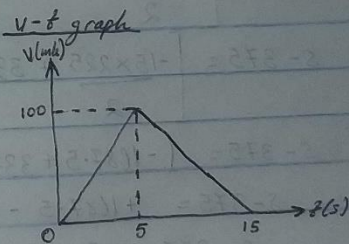 v-t graph
V(m/s)
100
0
5
15
t(s)